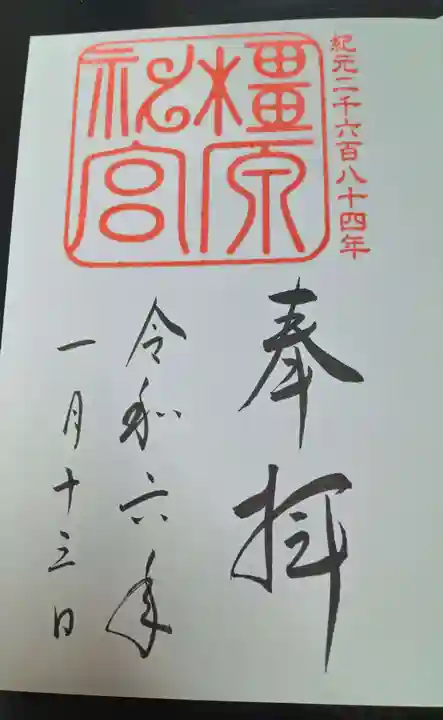 紀元二千六百八十四年
橿原
神宮
奉拝
令和六年
一月十三日